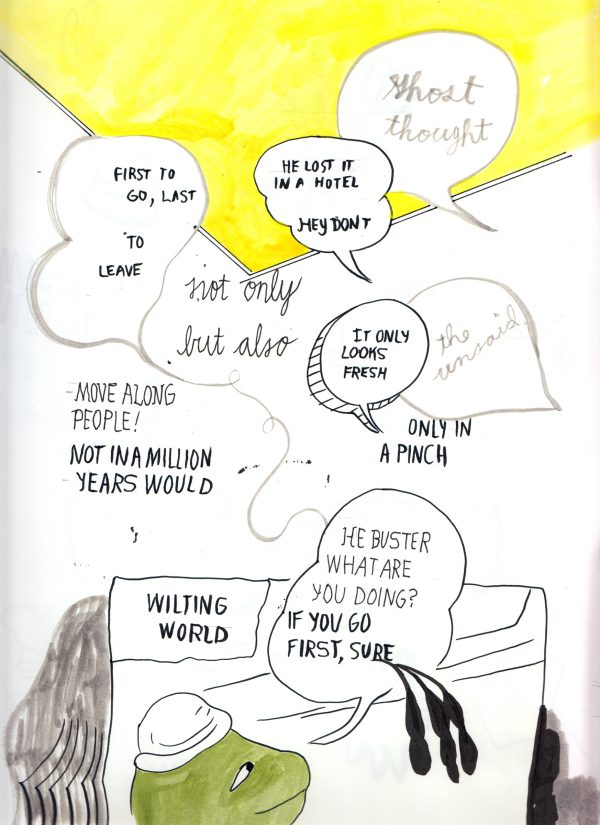 Ghost
thought
HE LOST IT
IN A HOTEL
HEY DON'T
FIRST TO
GO, LAST
TO
LEAVE
not only
but also
IT ONLY
LOOKS
FRESH
the
unsaid
MOVE ALONG
PEOPLE!
NOT IN A MILLION
YEARS WOULD
ONLY IN
A PINCH
HE BUSTER
WHAT ARE
YOU DOING?
IF YOU GO
FIRST, SURE
WILTING
WORLD